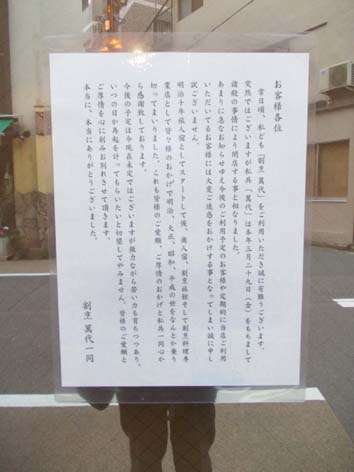 お客様各位
常日頃、私ども『割烹 萬代』をご利用いただき誠に有難うございます。
突然ではございますが私共「萬代」は本年三月二十九日（金）をもちまして
諸般の事情により閉店する事と相なりました。
あまりに急なお知らせゆえ今後のご利用予定のお客様や定期的に当店ご利用
いただいてるお客様には大変ご迷惑をおかけする事となってしまい誠に申し
訳ございません。
明治十年旅人宿としてスタートして後、商人宿、割烹旅館そして割烹料理専
業店として皆様のおかげで明治、大正、昭和、平成の世をなんとか乗り
切ってまいりました。これも皆様のご愛顧、ご厚情のおかげと私共一同心か
ら感謝致しております。
今後の予定は今現在未定ではございますが微力ながら若い力も育ちつつあり、
いつの日か再起を計ってもらいたいと切望してやみません。皆様のご愛顧と
ご厚情を心に刻みお別れさせて頂きます。
本当に、本当にありがとうございました。
割烹 萬代一同